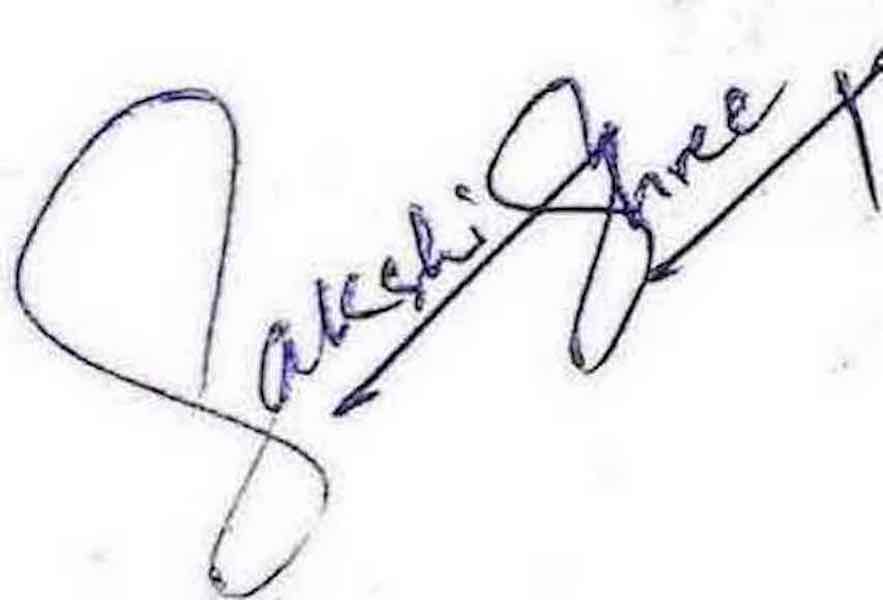 Sakshi Shree